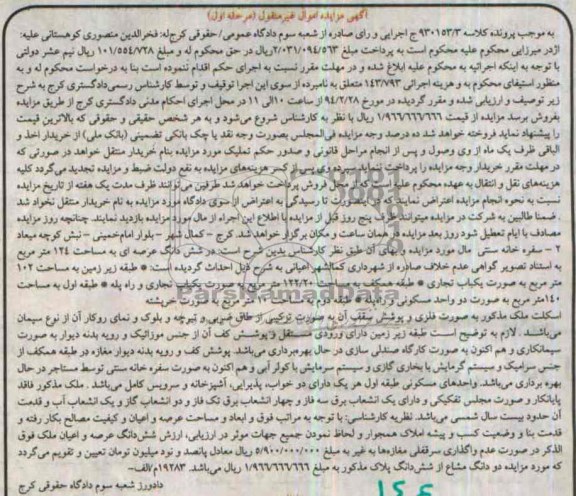 آگهی مزایده اموال غیرمنقول (مرحله اول)
به موجب پرونده کلاسه ۹۳۰۱۵۳/۳ ج اجرایی و رای صادره از شعبه سوم دادگاه عمومی/حقوقی کرج له: فخرالدین منصوری کوهستانی علیه:
اژدر میرزایی محکوم علیه محکوم است به پرداخت مبلغ ۲/۰۳۱/۰۹۴/۵۶۳ ریال در حق محکوم له و مبلغ ۱۰۱/۵۵۴/۷۲۸ ریال نیم عشر دولتی
با توجه به اینکه اجرائیه به محکوم علیه ابلاغ شده و در مهلت مقرر نسبت به اجرای حکم اقدام ننموده است بنا به درخواست محکوم له و به
منظور استیفای محکوم به و هزینه اجرائی ۱۴۳/۷۹۳ متعلق به نامبرده از سوی این اجرا توقیف و توسط کارشناس رسمی دادگستری کرج به شرح
زیر توصیف و ارزیابی شده و مقرر گردیده در مورخ ۹۴/۲/۲۸ از ساعت ۱۰ الی ۱۱ در محل اجرای احکام مدنی دادگستری کرج از طریق مزایده
بفروش برسد مزایده از قیمت ۱/۹۶۶/۶۶۶/۶۶۶ ریال با نظر به کارشناس شروع می‌شود و به هر شخص حقیقی و حقوقی که بالاترین قیمت
را پیشنهاد نماید فروخته خواهد شد ده درصد وجه مزایده فی‌المجلس بصورت وجه نقد یا چک بانکی تضمینی (بانک ملی) از خریدار اخذ و
الباقی ظرف یک ماه از وی وصول و پس از انجام مراحل قانونی و صدور حکم تملیک مورد مزایده بنام خریدار منتقل خواهد در صورتی که
در مهلت مقرر خریدار وجه مزایده را پرداخت ننماید سپرده وی پس از کسر هزینه‌های مزایده به نفع دولت ضبط و مزایده تجدید می‌گردد کلیه
هزینه‌های نقل و انتقال به عهده محکوم علیه است محل فروش پرداخت خواهد شد طرفین می‌توانند ظرف مدت یک هفته از تاریخ مزایده
نسبت به نحوه انجام مزایده اعتراض نمایند که در این صورت تا رسیدگی به اعتراض از سوی دادگاه مورد مزایده به نام خریدار منتقل نخواد شد
. ضمنا طالبین به شرکت در مزایده میتوانند ظرف پنج روز قبل از مزایده با اطلاع این اجراء از مال مورد مزایده بازدید نمایند. چنانچه روز مزایده
مصادف با ایام تعطیل شود روز بعد مزایده در همان ساعت و مکان برگزار خواهد شد. کرج - کمال شهر - بلوار امام خمینی - نبش کوچه میعاد
۲ - سفره خانه سنتی مال مورد مزایده و بهای آن طبق نظر کارشناس بدین شرح است: در شش دانگ عرصه ای به مساحت ۱۲۴ متر مربع
به استناد تصویر گواهی عدم خلاف صادره از شهرداری کمالشهر اعیانی به شرح ذیل احداث گردیده است: * طبقه زیر زمین به مساحت ۱۰۲
متر مربع به صورت یکباب تجاری * طبقه همکف به مساحت ۱۲۲/۲۰ متر مربع به صورت یکباب تجاری و راه پله * طبقه اول به مساحت
۱۴۰ متر مربع به صورت دو واحد مسکونی و راه پله * طبقه دوم به مساحت صورت خرپشته
اسکلت ملک مذکور به صورت فلزی و پوشش سقف آن به صورت ترکیبی از طاق ضربی و تیرچه و بلوک و نمای روکار آن از نوع سیمان
می‌باشند. لازم به توضیح است طبقه زیر زمین دارای ورودی مستقل و پوشش کف آن از جنس موزائیک و رویه بدنه دیوار به صورت
سیمانکاری و هم اکنون به صورت کارگاه صندلی سازی در حال بهره‌برداری می‌باشد. پوشش کف و رویه بدنه دیوار مغازه در طبقه همکف از
جنس سرامیک و سیستم گرمایش با بخاری گازی و سیستم سرمایش با کولر آبی و هم اکنون به صورت سفره خانه سنتی توسط مستاجر در حال
بهره برداری می‌باشد. واحدهای مسکونی طبقه اول هر یک دارای دو خواب، پذیرایی، آشپزخانه و سرویس کامل می‌باشد . ملک مذکور فاقد
پایانکار و صورت مجلس تفکیکی و دارای یک انشعاب برق سه فاز و چهار انشعاب برق تک فاز و دو انشعاب گاز و یک انشعاب آب و قدمت
آن حدود بیست سال شمسی می‌باشد. نظریه کارشناسی: با توجه به مراتب فوق و ابعاد و مساحت عرصه و اعیان و کیفیت مصالح بکار رفته و
قدمت بنا و وضعیت کسب و پیشه املاک همجوار و لحاظ نمودن جمیع جهات موثر در ارزیابی، ارزش شش‌دانگ عرصه و اعیان ملک فوق
الذکر در صورت عدم واگذاری سرقفلی مغازه‌ها به غیر به مبلغ ۵/۹۰۰/۰۰۰/۰۰۰ ریال معادل پانصد و نود میلیون تومان تعیین و تقویم می‌گردد
که مورد مزایده دو دانگ مشاع از شش‌دانگ پلاک مذکور به مبلغ ۱/۹۶۶/۶۶۶/۶۶۶ ریال می‌باشد. ۱۹۲۸۳م/الف-
دادورز شعبه سوم دادگاه حقوقی کرج